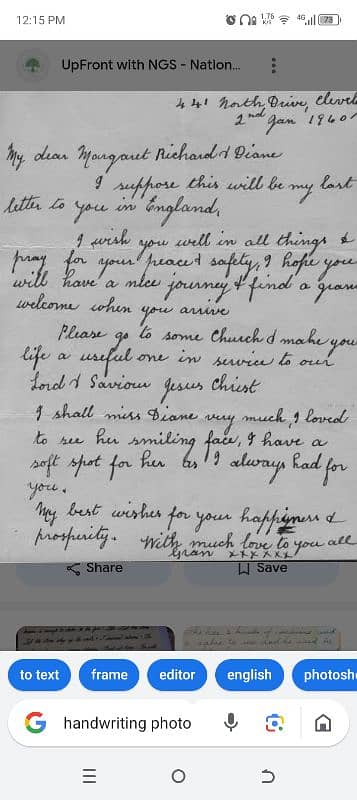 12:15 PM
1.76
K/s
4G
73
UpFront with NGS - Nation...
441 North Drive, Clevel
2nd Jan 1960
My dear Margaret Richard & Diane
I suppose this will be my last
letter to you in England,
I wish you well in all things &
pray for your peace & safety, I hope you
will have a nice journey & find a gran
welcome when you arrive
Please go to some Church & make you
life a useful one in service to our
Lord & Saviour Jesus Christ
I shall miss Diane very much, I loved
to see her smiling face, I have a
soft spot for her as I always had for
you.
My best wishes for your happiness &
prosperity. With much love to you all
Gran xxxxxxx
Share
Save
to text
frame
editor
english
photosh
handwriting photo